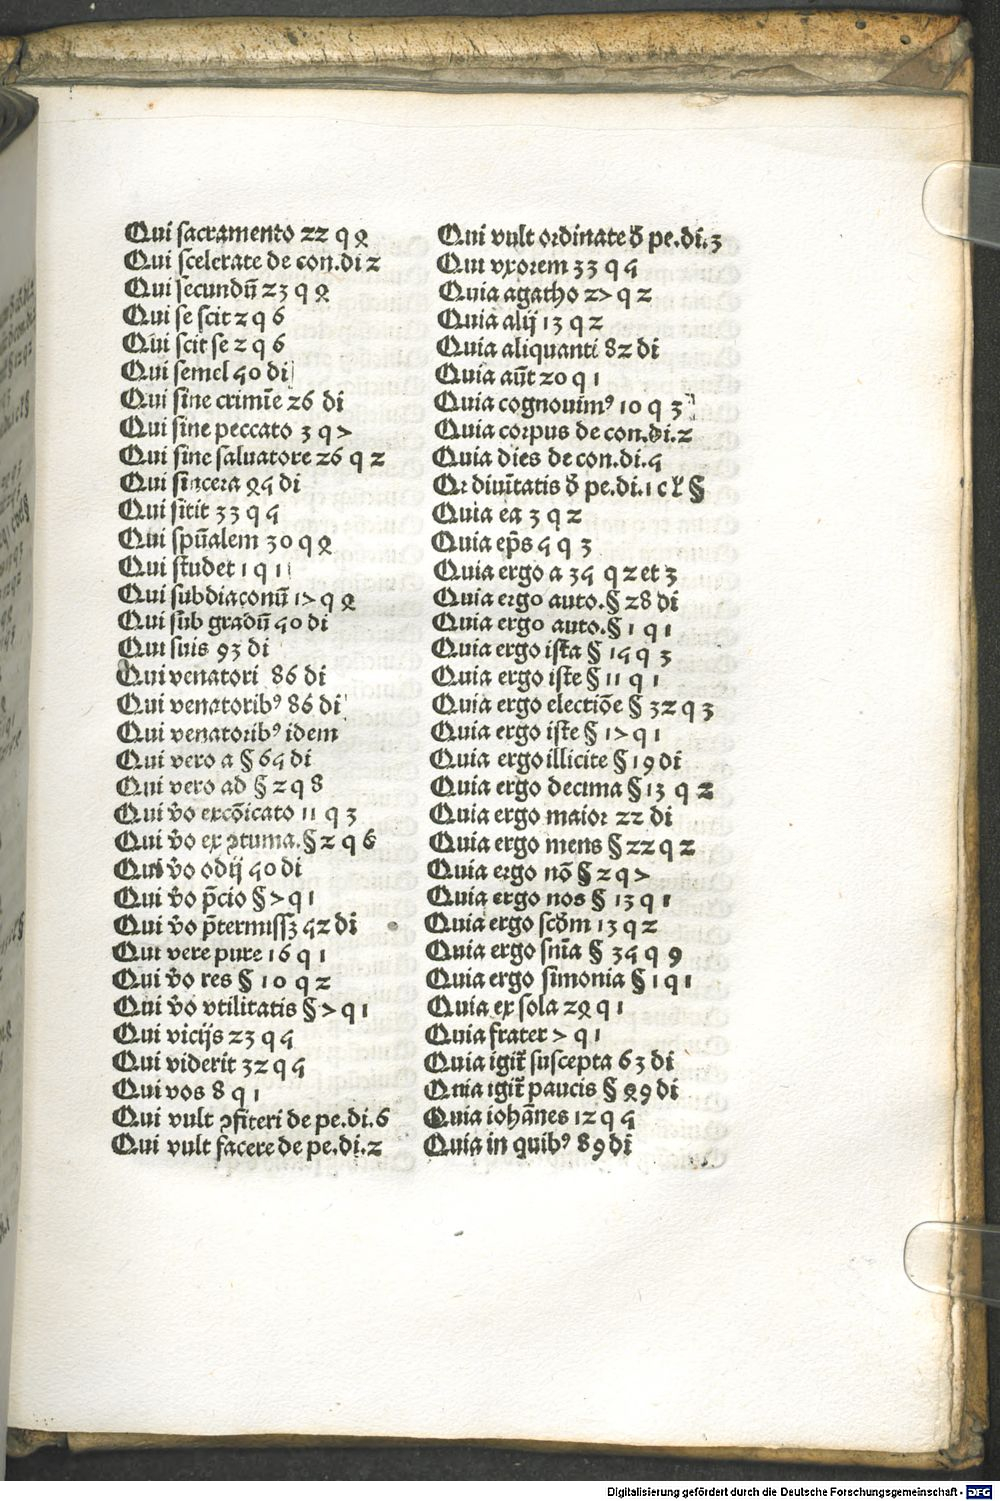 Qui sacramento 22 q 4
Qui scelerate de con.di 2
Qui secundū 23 q 4
Qui se scit 2 q 6
Qui scit se 2 q 6
Qui semel 50 di
Qui sine crimīe 26 di
Qui sine peccato 3 q 7
Qui sine saluatore 26 q 2
Qui sincera 45 di
Qui sitit 33 q 5
Qui spūalem 30 q 4
Qui studet 1 q 1
Qui subdiaconū 17 q 4
Qui sub gradū 50 di
Qui suis 93 di
Qui venatori 86 di
Qui venatoribꝰ 86 di
Qui venatoribꝰ idem
Qui vero a § 65 di
Qui vero ad § 2 q 8
Qui v̄o excōicato 11 q 3
Qui v̄o ex ꝯtuma.§ 2 q 6
Qui v̄o odij 50 di
Qui v̄o p̄cio § 7 q 1
Qui v̄o p̄termissꝫ 52 di
Qui vere pure 16 q 1
Qui v̄o res § 10 q 2
Qui v̄o vtilitatis § 7 q 1
Qui vicijs 23 q 5
Qui viderit 32 q 5
Qui vos 8 q 1
Qui vult ꝯfiteri de pe.di.6
Qui vult facere de pe.di.2
Qui vult ordinate d̄ pe.di.3
Qui vxorem 33 q 5
Quia agatho 27 q 2
Quia alij 13 q 2
Quia aliquanti 82 di
Quia aūt 20 q 1
Quia cognouimꝰ 10 q 3
Quia corpus de con.di.2
Quia dies de con.di.5
Qr diuītatis d̄ pe.di.1 c l §
Quia ea 3 q 2
Quia ep̄s 5 q 3
Quia ergo a 35 q 2 et 3
Quia ergo auto.§ 28 di
Quia ergo auto.§ 1 q 1
Quia ergo ista § 15 q 3
Quia ergo iste § 11 q 1
Quia ergo electiōe § 32 q 3
Quia ergo iste § 17 q 1
Quia ergo illicite § 19 di
Quia ergo decima § 13 q 2
Quia ergo maior 22 di
Quia ergo mens § 22 q 2
Quia ergo nō § 2 q 7
Quia ergo nos § 13 q 1
Quia ergo scd̄m 13 q 2
Quia ergo snīa § 35 q 9
Quia ergo simonia § 1 q 1
Quia ex sola 24 q 1
Quia frater 7 q 1
Quia igit̄ suscepta 63 di
Quia igit̄ paucis § 49 di
Quia iohānes 12 q 5
Quia in quibꝰ 89 di
Digitalisierung gefördert durch die Deutsche Forschungsgemeinschaft - DFG